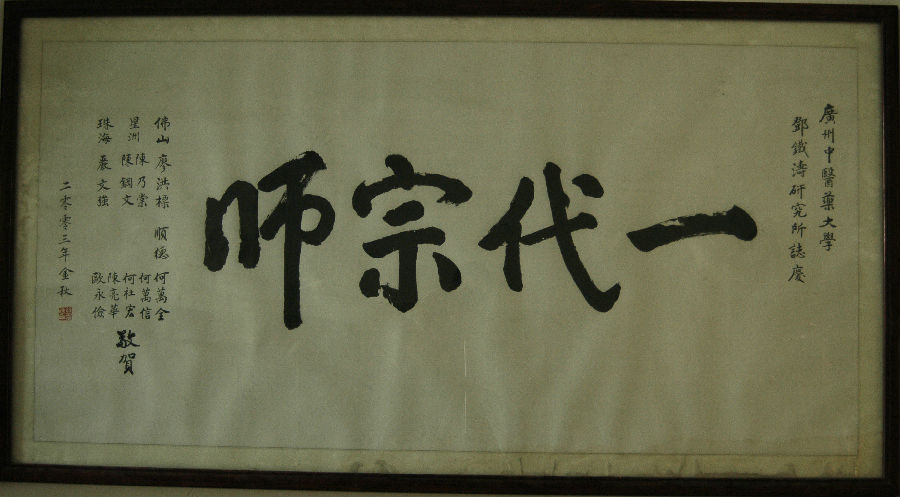 廣州中醫藥大學
鄧鐵濤研究所誌慶
一代宗師
佛山 廖洪標 順德 何萬全
何萬信
星洲 陳乃棠
陳鋼文 何社宏
陳亮華
珠海 嚴文強 歐永儉
敬賀
二零零三年金秋